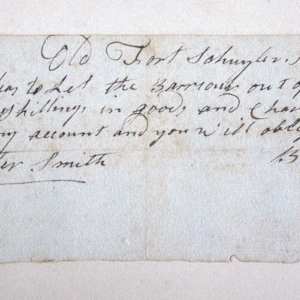 Old Fort Schuyler
to Let the Barrour out of
shillings in goods and Char
my account and you will obl
ter Smith